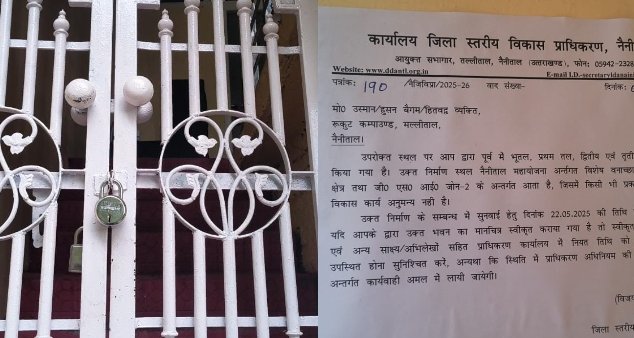 कार्यालय जिला स्तरीय विकास प्राधिकरण, नैनी
आयुक्त सभागार, तल्लीताल, नैनीताल (उत्तराखण्ड), फोन: 05942-2328
Website: www.ddantl.org.in
E-mail I.D.-secretaryldanain
पत्रांक: 190 /नैजिविप्रा/2025-26 वाद संख्या- दिनांक:
मो0 उस्मान/हुसन बैगम/हितवद्ध व्यक्ति,
रूकुट कम्पाउण्ड, मल्लीताल,
नैनीताल।
उपरोक्त स्थल पर आप द्वारा पूर्व में भूतल, प्रथम तल, द्वितीय एवं तृती
किया गया है। उक्त निर्माण स्थल नैनीताल महायोजना अर्न्तगत विशेष वनाच्छा
क्षेत्र तथा जी0 एस0 आई0 जोन-2 के अन्तर्गत आता है, जिसमें किसी भी प्रक
विकास कार्य अनुमन्य नही है।
उक्त निर्माण के सम्बन्ध में सुनवाई हेतु दिनांक 22.05.2025 की तिथि
यदि आपके द्वारा उक्त भवन का मानचित्र स्वीकृत कराया गया है तो स्वीकृत
एवं अन्य साक्ष्य/अभिलेखों सहित प्राधिकरण कार्यालय में नियत तिथि को
उपस्थित होना सुनिश्चित करें, अन्यथा कि स्थिति में प्राधिकरण अधिनियम की
अन्तर्गत कार्यवाही अमल में लायी जायेगी।
(विजय
जिला स्तरीय